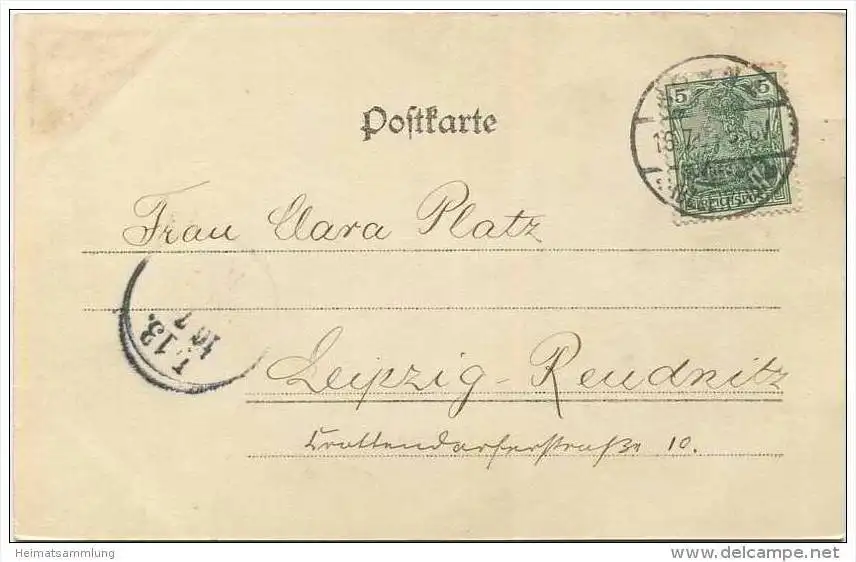 Postkarte
5 5
REICHSPOST
Frau Clara Platz
T 13.
16 7
Leipzig-Reudnitz
Crottendorferstraße 10.
Heimatsammlung
www.delcampe.net